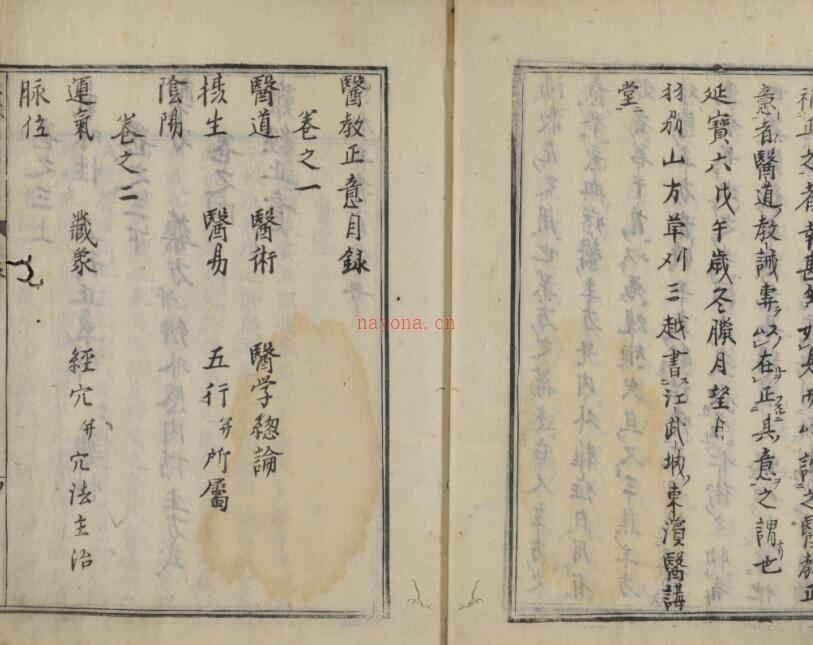 補正之者幸甚
意者醫道教誡專以在正其意之謂也
延寶六戊午歲冬臘月望日
羽刕山方草刈三越書江武城東濱醫講
堂
醫教正意目錄
卷之一
醫道 醫術 醫学總論
攝生 醫易 五行并所屬
陰陽
卷之二
運氣 藏象 經穴并穴法主治
脉位
nayona.cn